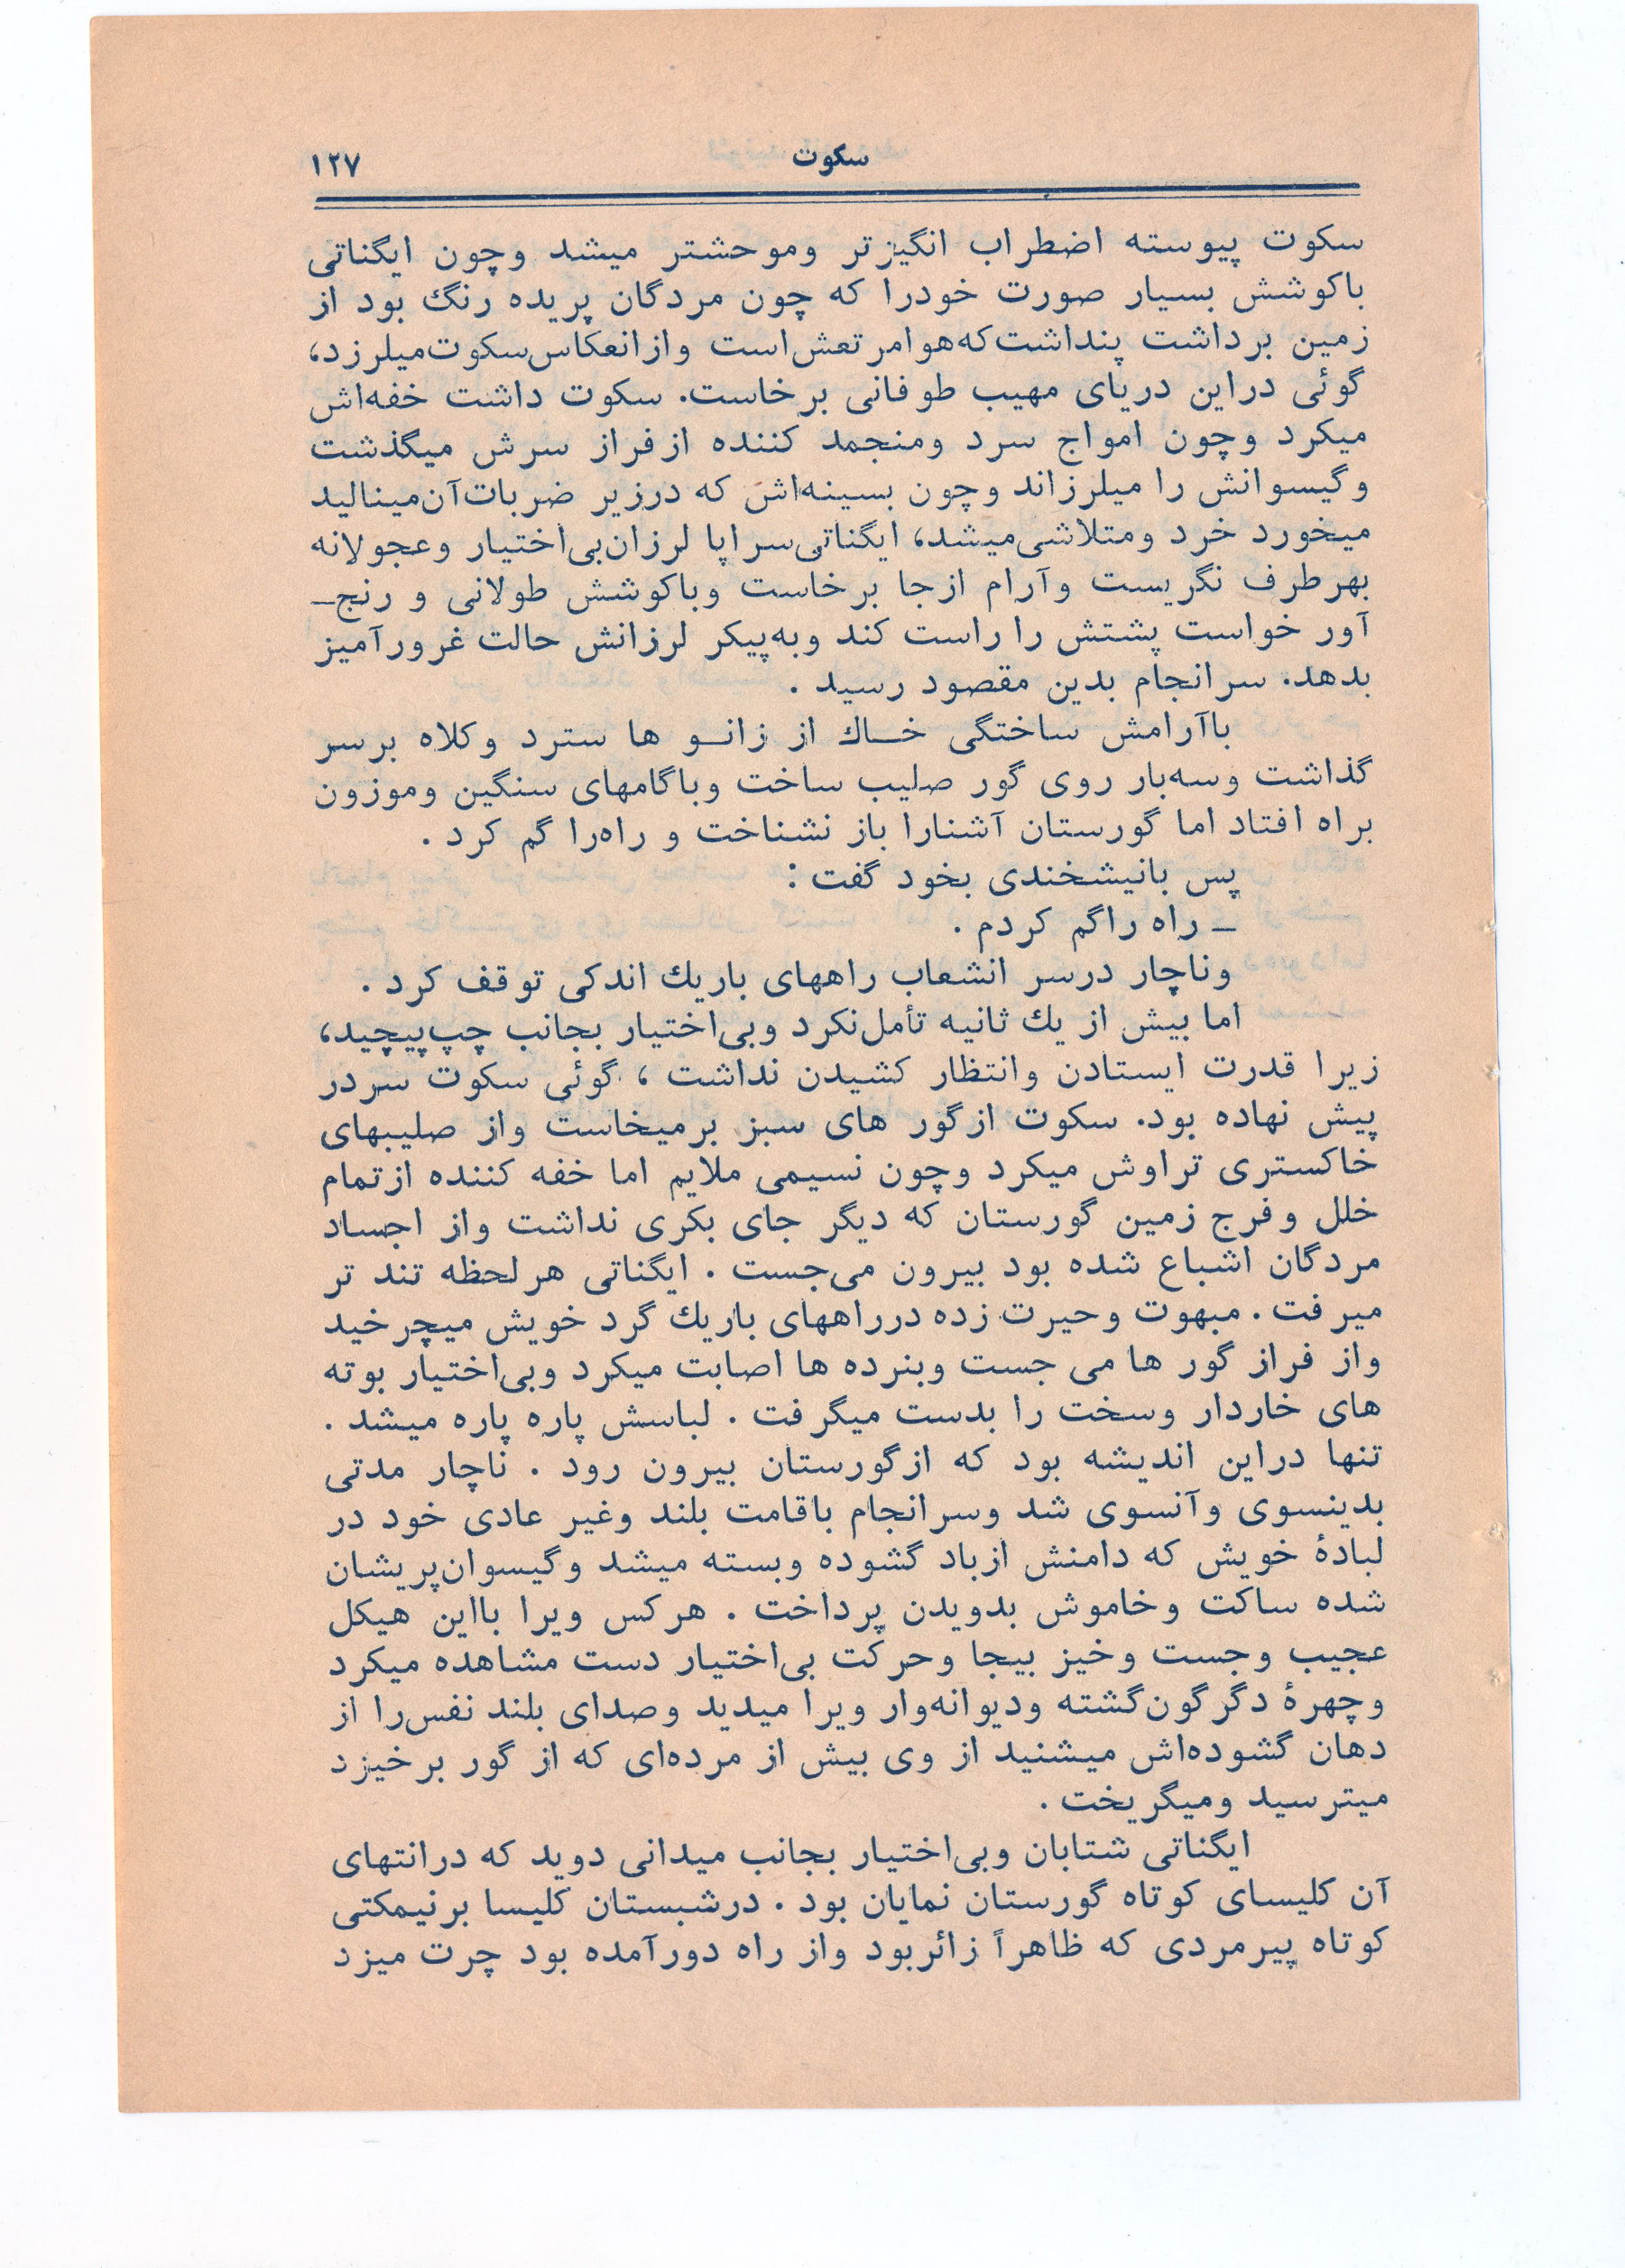 سکوت
۱۲۷
سکوت پیوسته اضطراب انگیزتر وموحشتر میشد وچون ایگناتی
باکوشش بسیار صورت خودرا که چون مردگان پریده رنگ بود از
زمین برداشت پنداشت‌که‌هوامرتعش‌است وازانعکاس‌سکوت‌میلرزد،
گوئی دراین دریای مهیب طوفانی برخاست. سکوت داشت خفه‌اش
میکرد وچون امواج سرد ومنجمد کننده ازفراز سرش میگذشت
وگیسوانش را میلرزاند وچون بسینه‌اش که درزیر ضربات‌آن‌مینالید
میخورد خرد ومتلاشی‌میشد، ایگناتی‌سراپا لرزان‌بی‌اختیار وعجولانه
بهرطرف نگریست وآرام ازجا برخاست وباکوشش طولانی و رنج‌ـ
آور خواست پشتش را راست کند وبه‌پیکر لرزانش حالت غرورآمیز
بدهد. سرانجام بدین مقصود رسید .
باآرامش ساختگی خـاك از زانـو ها سترد وکلاه برسر
گذاشت وسه‌بار روی گور صلیب ساخت وباگامهای سنگین وموزون
براه افتاد اما گورستان آشنارا باز نشناخت و راه‌را گم کرد .
پس بانیشخندی بخود گفت :
ـ راه راگم کردم .
وناچار درسر انشعاب راههای باریك اندکی توقف کرد .
اما بیش از یك ثانیه تأمل‌نکرد وبی‌اختیار بجانب چپ‌پیچید،
زیرا قدرت ایستادن وانتظار کشیدن نداشت ، گوئی سکوت سردر
پیش نهاده بود. سکوت ازگور های سبز برمیخاست واز صلیبهای
خاکستری تراوش میکرد وچون نسیمی ملایم اما خفه کننده ازتمام
خلل وفرج زمین گورستان که دیگر جای بکری نداشت واز اجساد
مردگان اشباع شده بود بیرون می‌جست . ایگناتی هرلحظه تند تر
میرفت . مبهوت وحیرت زده درراههای باریك گرد خویش میچرخید
واز فراز گور ها می جست وبنرده ها اصابت میکرد وبی‌اختیار بوته
های خاردار وسخت را بدست میگرفت . لباسش پاره پاره میشد .
تنها دراین اندیشه بود که ازگورستان بیرون رود . ناچار مدتی
بدینسوی وآنسوی شد وسرانجام باقامت بلند وغیر عادی خود در
لبادهٔ خویش که دامنش ازباد گشوده وبسته میشد وگیسوان‌پریشان
شده ساکت وخاموش بدویدن پرداخت . هرکس ویرا بااین هیکل
عجیب وجست وخیز بیجا وحرکت بی‌اختیار دست مشاهده میکرد
وچهرهٔ دگرگون‌گشته ودیوانه‌وار ویرا میدید وصدای بلند نفس‌را از
دهان گشوده‌اش میشنید از وی بیش از مرده‌ای که از گور برخیزد
میترسید ومیگریخت .
ایگناتی شتابان وبی‌اختیار بجانب میدانی دوید که درانتهای
آن کلیسای کوتاه گورستان نمایان بود . درشبستان کلیسا برنیمکتی
کوتاه پیرمردی که ظاهراً زائربود واز راه دورآمده بود چرت میزد